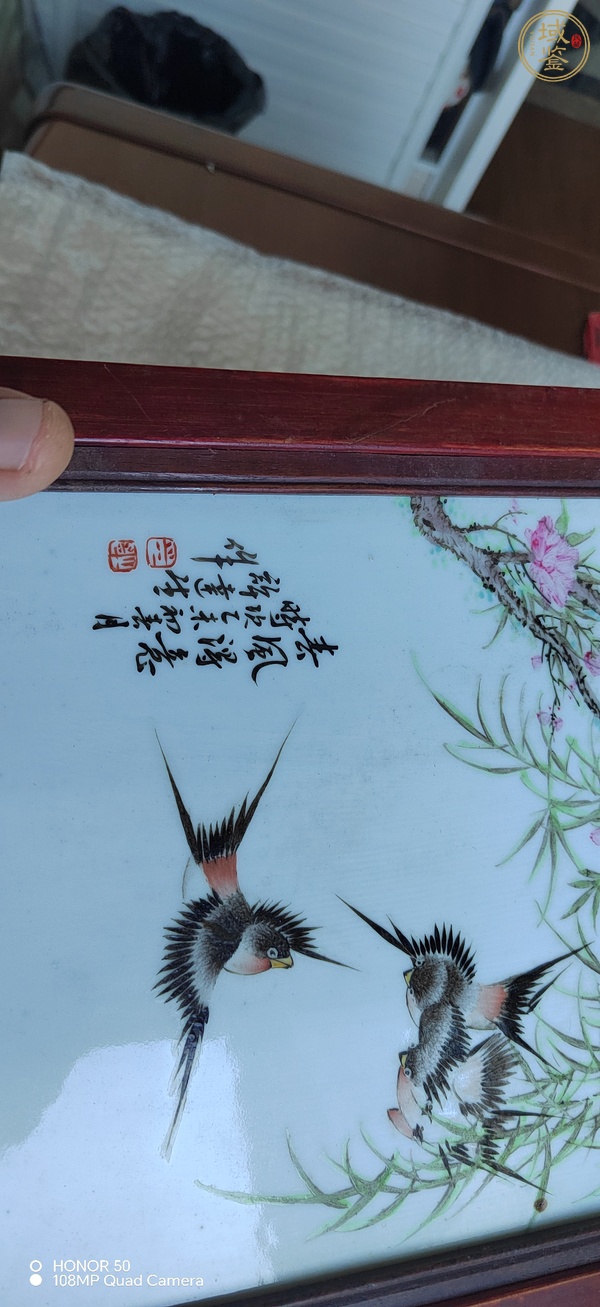 域鉴
春風得意
時乙未初春月
許達生
作
HONOR 50
108MP Quad Camera